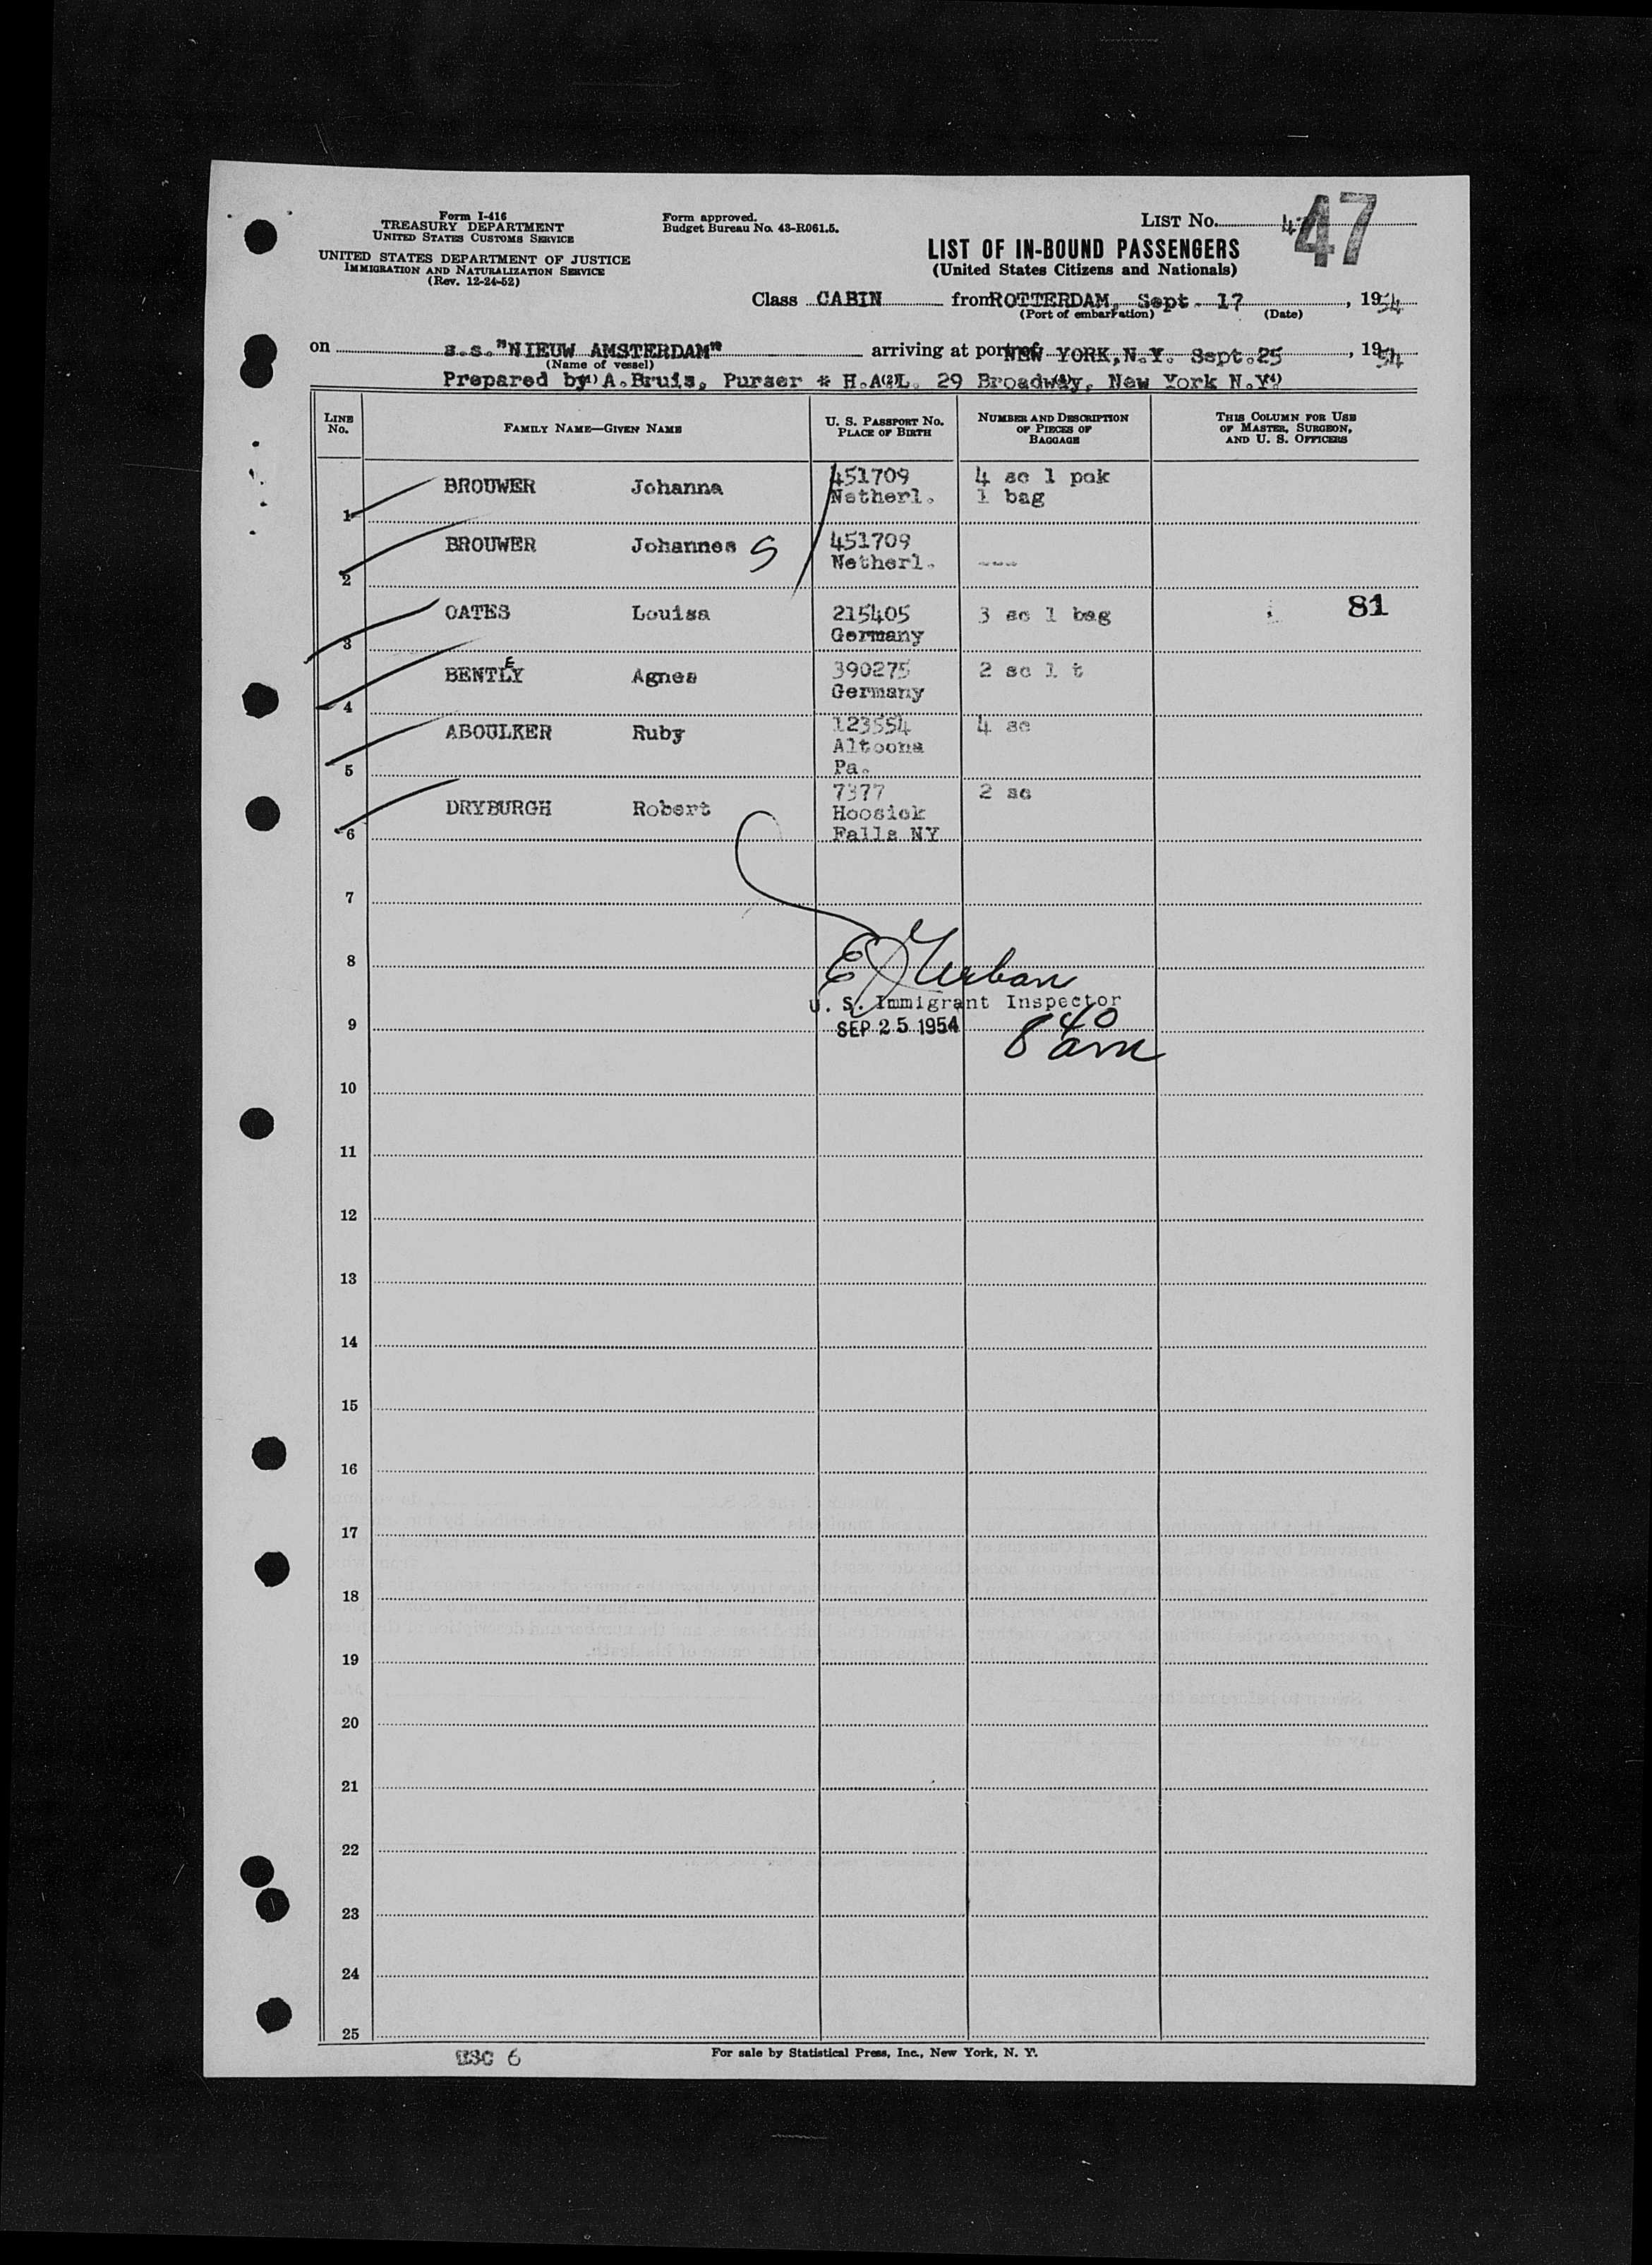 Form I-416
TREASURY DEPARTMENT
UNITED STATES CUSTOMS SERVICE
UNITED STATES DEPARTMENT OF JUSTICE
IMMIGRATION AND NATURALIZATION SERVICE
(Rev. 12-24-52)
Form approved.
Budget Bureau No. 43-R061.5.
LIST No. 47
LIST OF IN-BOUND PASSENGERS
(United States Citizens and Nationals)
Class CABIN from ROTTERDAM, Sept. 17, 1954
(Port of embarkation) (Date)
on s.s. "NIEUW AMSTERDAM" arriving at port of NEW YORK, N.Y. Sept. 25, 1954
(Name of vessel)
Prepared by A. Bruis, Purser * H.A.L. 29 Broadway, New York N.Y.
(1) (2) (3) (4)
LINE No. FAMILY NAME—GIVEN NAME U. S. PASSPORT NO. PLACE OF BIRTH NUMBER AND DESCRIPTION OF PIECES OF BAGGAGE THIS COLUMN FOR USE OF MASTER, SURGEON, AND U. S. OFFICERS
1 BROUWER Johanna 451709 4 sc 1 pck
Netherl. 1 bag
2 BROUWER Johannes S 451709
Netherl. ---
3 OATES Louisa 215405 3 sc 1 bag 81
Germany
4 BENTLEY Agnes 390275 2 sc 1 t
Germany
5 ABOULKER Ruby 123554 4 sc
Altoona
Pa.
6 DRYBURGH Robert 7377 2 sc
Hoosick
Falls NY
7
8 E J Urban
U. S. Immigrant Inspector
9 SEP 25 1954 8 40 am
10
11
12
13
14
15
16
17
18
19
20
21
22
23
24
25
USC 6
For sale by Statistical Press, Inc., New York, N. Y.